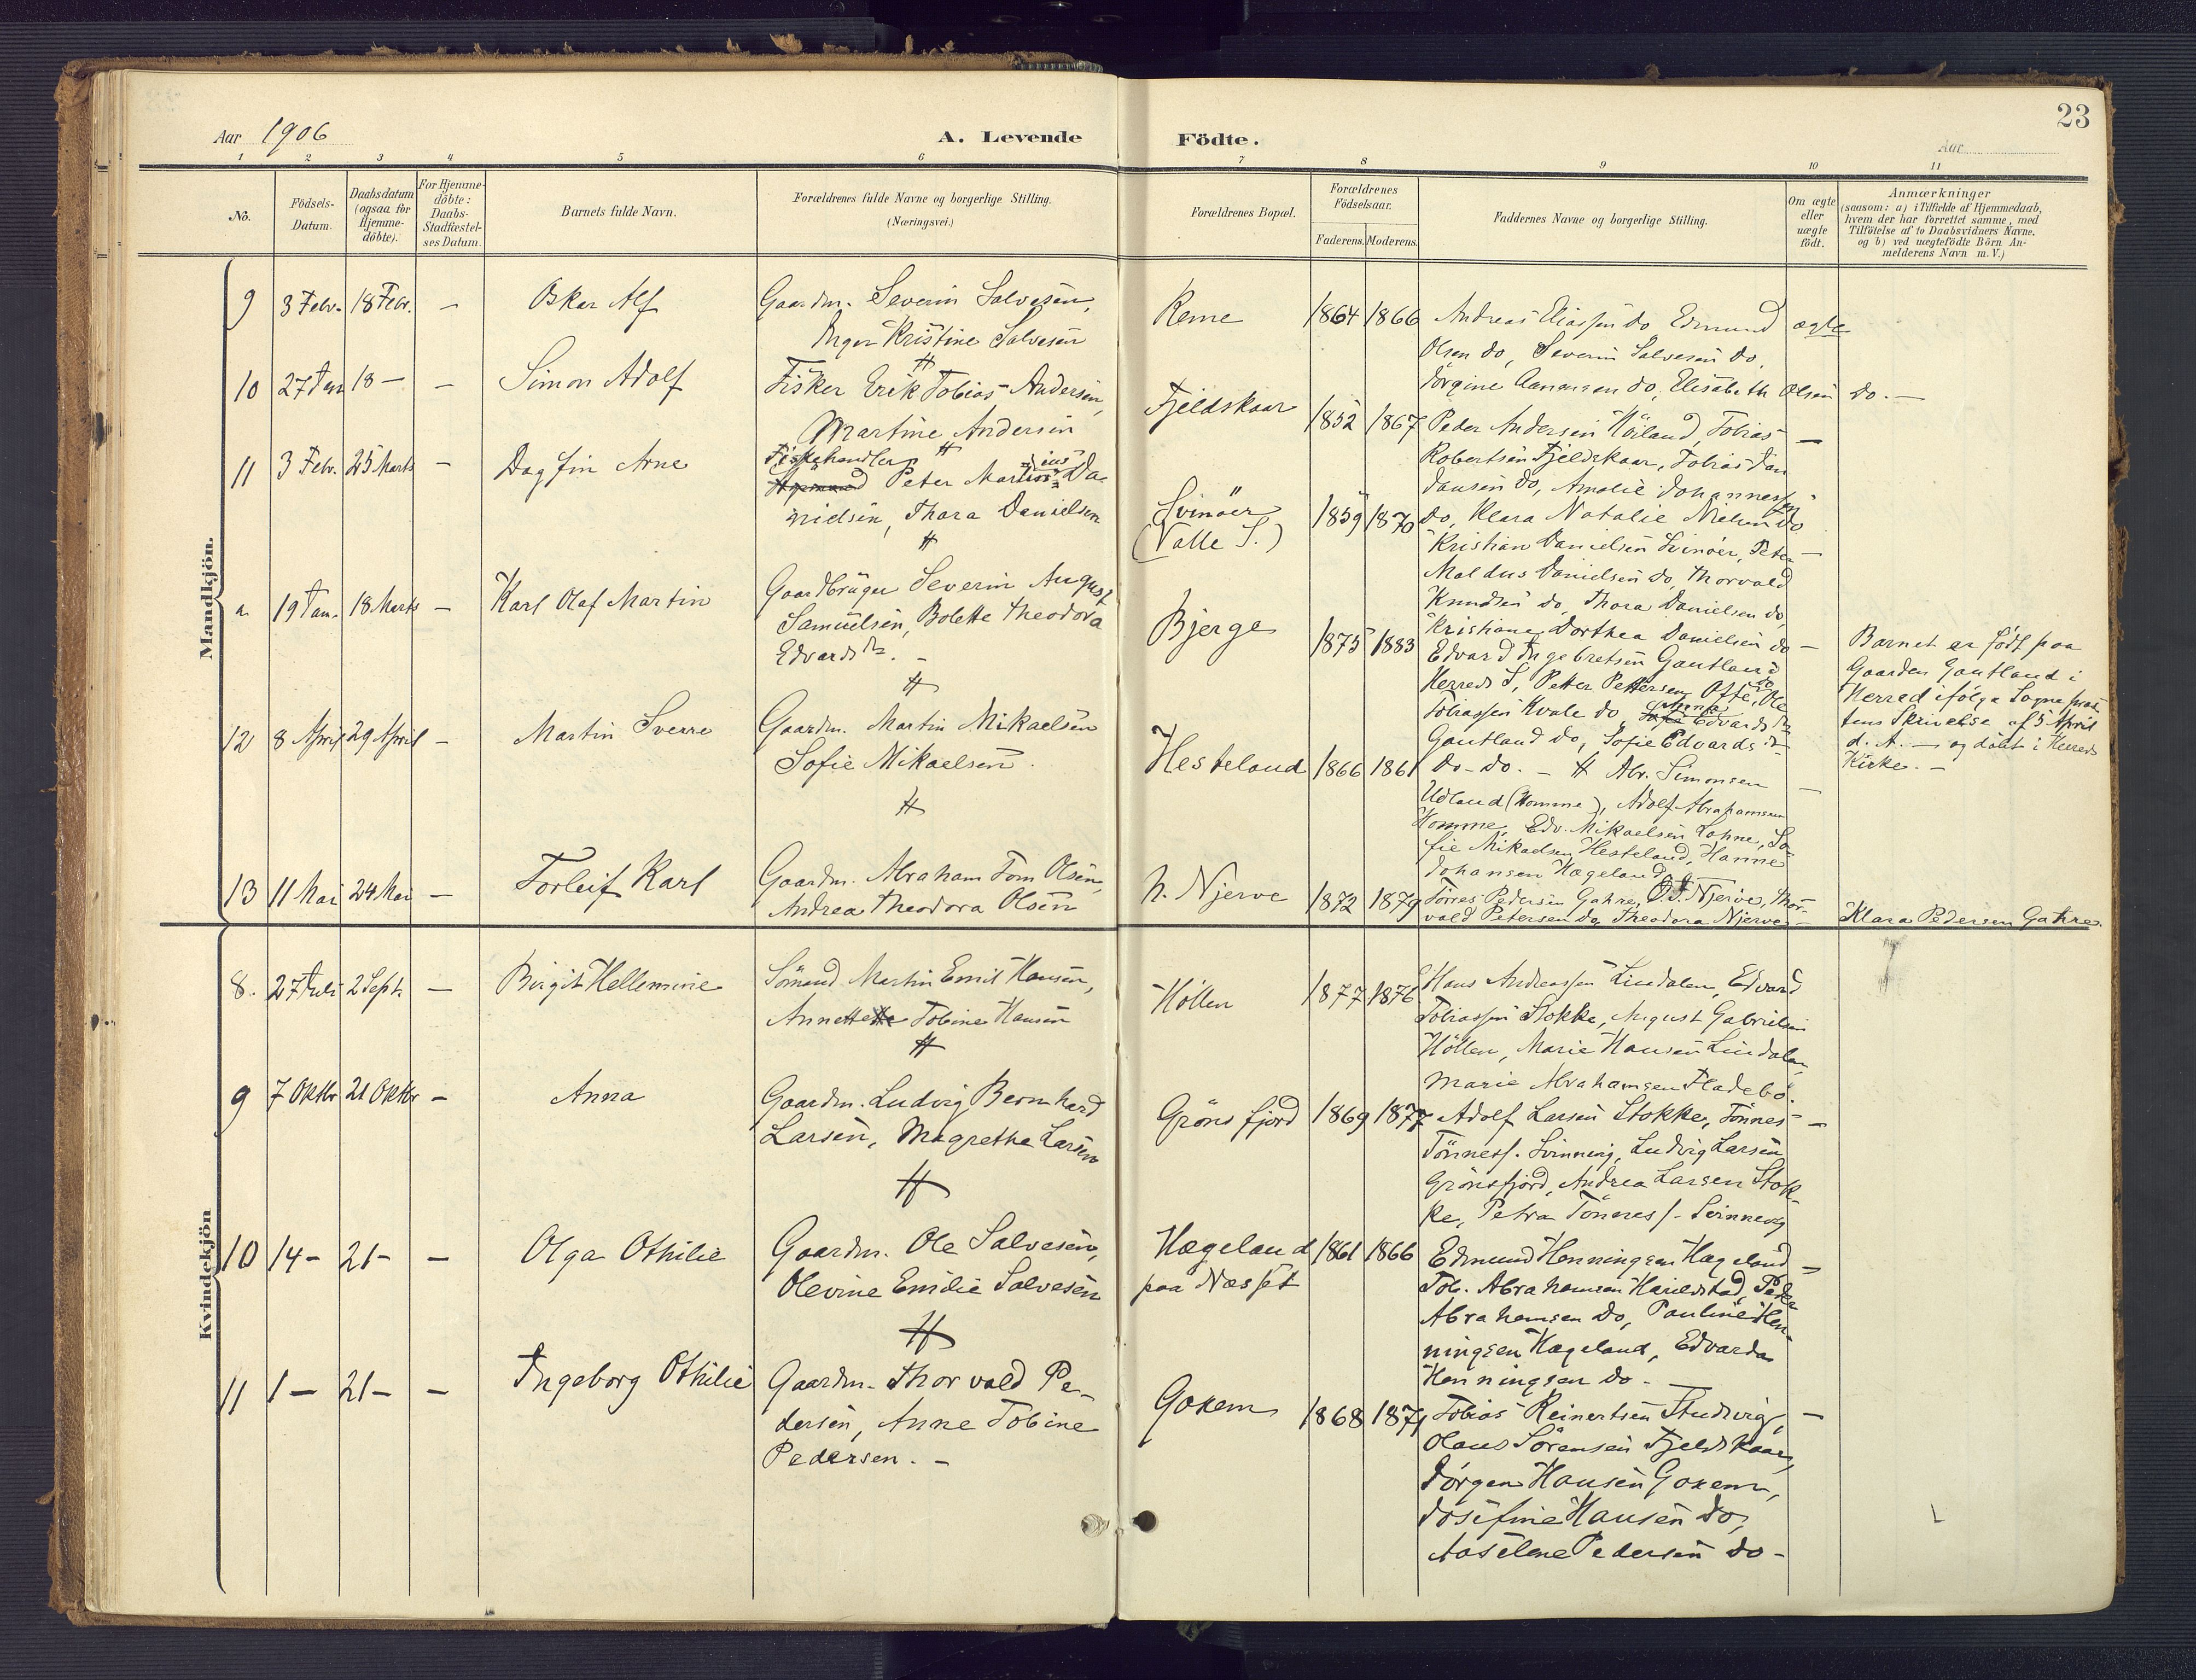 23
Aar 1906
A. Levende Födte.
Aar
1 2 3 4 5 6 7 8 9 10 11
No.
Födsels-
Datum.
Daabsdatum
(ogsaa for
Hjemme-
döbte).
For Hjemme-
döbte:
Daabs-
Stadfæstel-
ses Datum.
Barnets fulde Navn.
Forældrenes fulde Navne og borgerlige Stilling.
(Næringsvei.)
Forældrenes Bopæl.
Forældrenes
Födselsaar.
Faderens. Moderens.
Faddernes Navne og borgerlige Stilling.
Om ægte
eller
uægte
födt.
Anmærkninger
(saasom: a) i Tilfælde af Hjemmedaab,
hvem der har forrettet samme, med
Tilföielse af to Daabsvidners Navne,
og b) ved uægtefödte Börn An-
melderens Navn m. V.)
Mandkjön.
9 3 Febr. 18 Febr. – Oskar Alf
Gaardm. Severin Salvesen,
Inger Kristine Salvesen
Reme 1864 1866
Andreas Eliassen do, Edmund
Olsen do, Severin Salvesen do,
Jörgine Aanensen do, Elisabeth Olsen do. –
ægte
10 27 Jan 18 – – Simon Adolf
Fisker Erik Tobias Andersen,
Martine Andersen
Fjeldskaar 1852 1867
Peder Andersen Höiland, Tobias
Robertsen Fjeldskaar, Tobias Jan
Jansen do, Amalie Johannessen
do, Klara Natalie Nielsen do
–
11 3 Febr. 25 Marts – Dagfin Arne
Fiskehandler
Peter Martinius Da-
nielsen, Thara Danielsen
Svinöer
(Valle S.)
1859 1870
Kristian Danielsen Svinöer, Peter
Maldus Danielsen do, Thorvald
Knudsen do, Thara Danielsen do,
Kristiane Dorthea Danielsen do
–
a. 19 Jan. 18 Marts – Karl Olaf Martin
Gaardbruger Severin August
Samuelsen, Bolette Theodora
Edvardsdr. –
Bjerge 1875 1883
Edvard Ingebretsen Gautland
Herreds S, Petter Pettersen Ofte do, Ole
Tobiassen Kvale do, Edvardsdr
Gautland do, Sofie Edvardsdr
do – do. –
–
Barnet er födt paa
Gaarden Gautland i
Herred ifölge Sognepræs-
tens Skrivelse af 5 April
d. A. – og döbt i Herreds
Kirke. –
12 8 April 29 April – Martin Sverre
Gaardm. Martin Mikaelsen
Sofie Mikaelsen.
Hesteland 1866 1861
Abr. Simonsen
Udland (Homme), Adolf Abrahamsen
Homme, Edv. Mikaelsen Lohne, So-
fie Mikaelsen Hesteland, Hanne
Johansen Hægeland
–
13 11 Mai 24 Mai – Torleif Karl
Gaardm. Abraham Tom Olsen,
Andrea Theodora Olsen
N. Njerve 1872 1879
Törres Pedersen Gahre, O. T. Njerve, Thor-
vald Petersen do, Theodora Njerve –
Klara Pedersen Gahre.
Kvindekjön
8. 27 Juli 2 Sept. – Birgit Hellemine
Sömand Martin Emil Hansen,
Annette Tobine Hansen
Höllen 1877 1876
Hans Andreassen Lindalen, Edvard
Tobiassen Stokke, August Gabrielsen
Höllen, Marie Hansen Lindalen,
Marie Abrahamsen Fladebö.
9 7 Oktbr 21 Oktbr – Anna
Gaardm. Ludvig Bernhard
Larsen, Magrethe Larsen
Grönsfjord 1869 1877
Adolf Larsen Stokke, Tönnes
Tönness. Svinning, Ludvig Larsen
Grönsfjord, Andrea Larsen Stok-
ke, Petra Tönness. Svinning
–
10 14 – 21 – – Olga Othilie
Gaardm. Ole Salvesen,
Olevine Emilie Salvesen
Hægeland
paa Næsset
1861 1866
Edmund Henningsen Hægeland
Tob. Abrahamsen Harildstad, Peder
Abrahamsen do, Pauline Hen-
ningsen Hægeland, Edvarda
Henningsen do –
–
11 1 – 21 – – Ingeborg Othilie
Gaardm. Thorvald Pe-
dersen, Anne Tobine
Pedersen. –
Goxem 1868 1871
Tobias Reinertsen Studvig,
Olaus Sörensen Fjeldskaar,
Jörgen Hansen Goxem,
Josefine Hansen do,
Aaselene Pedersen do –
–